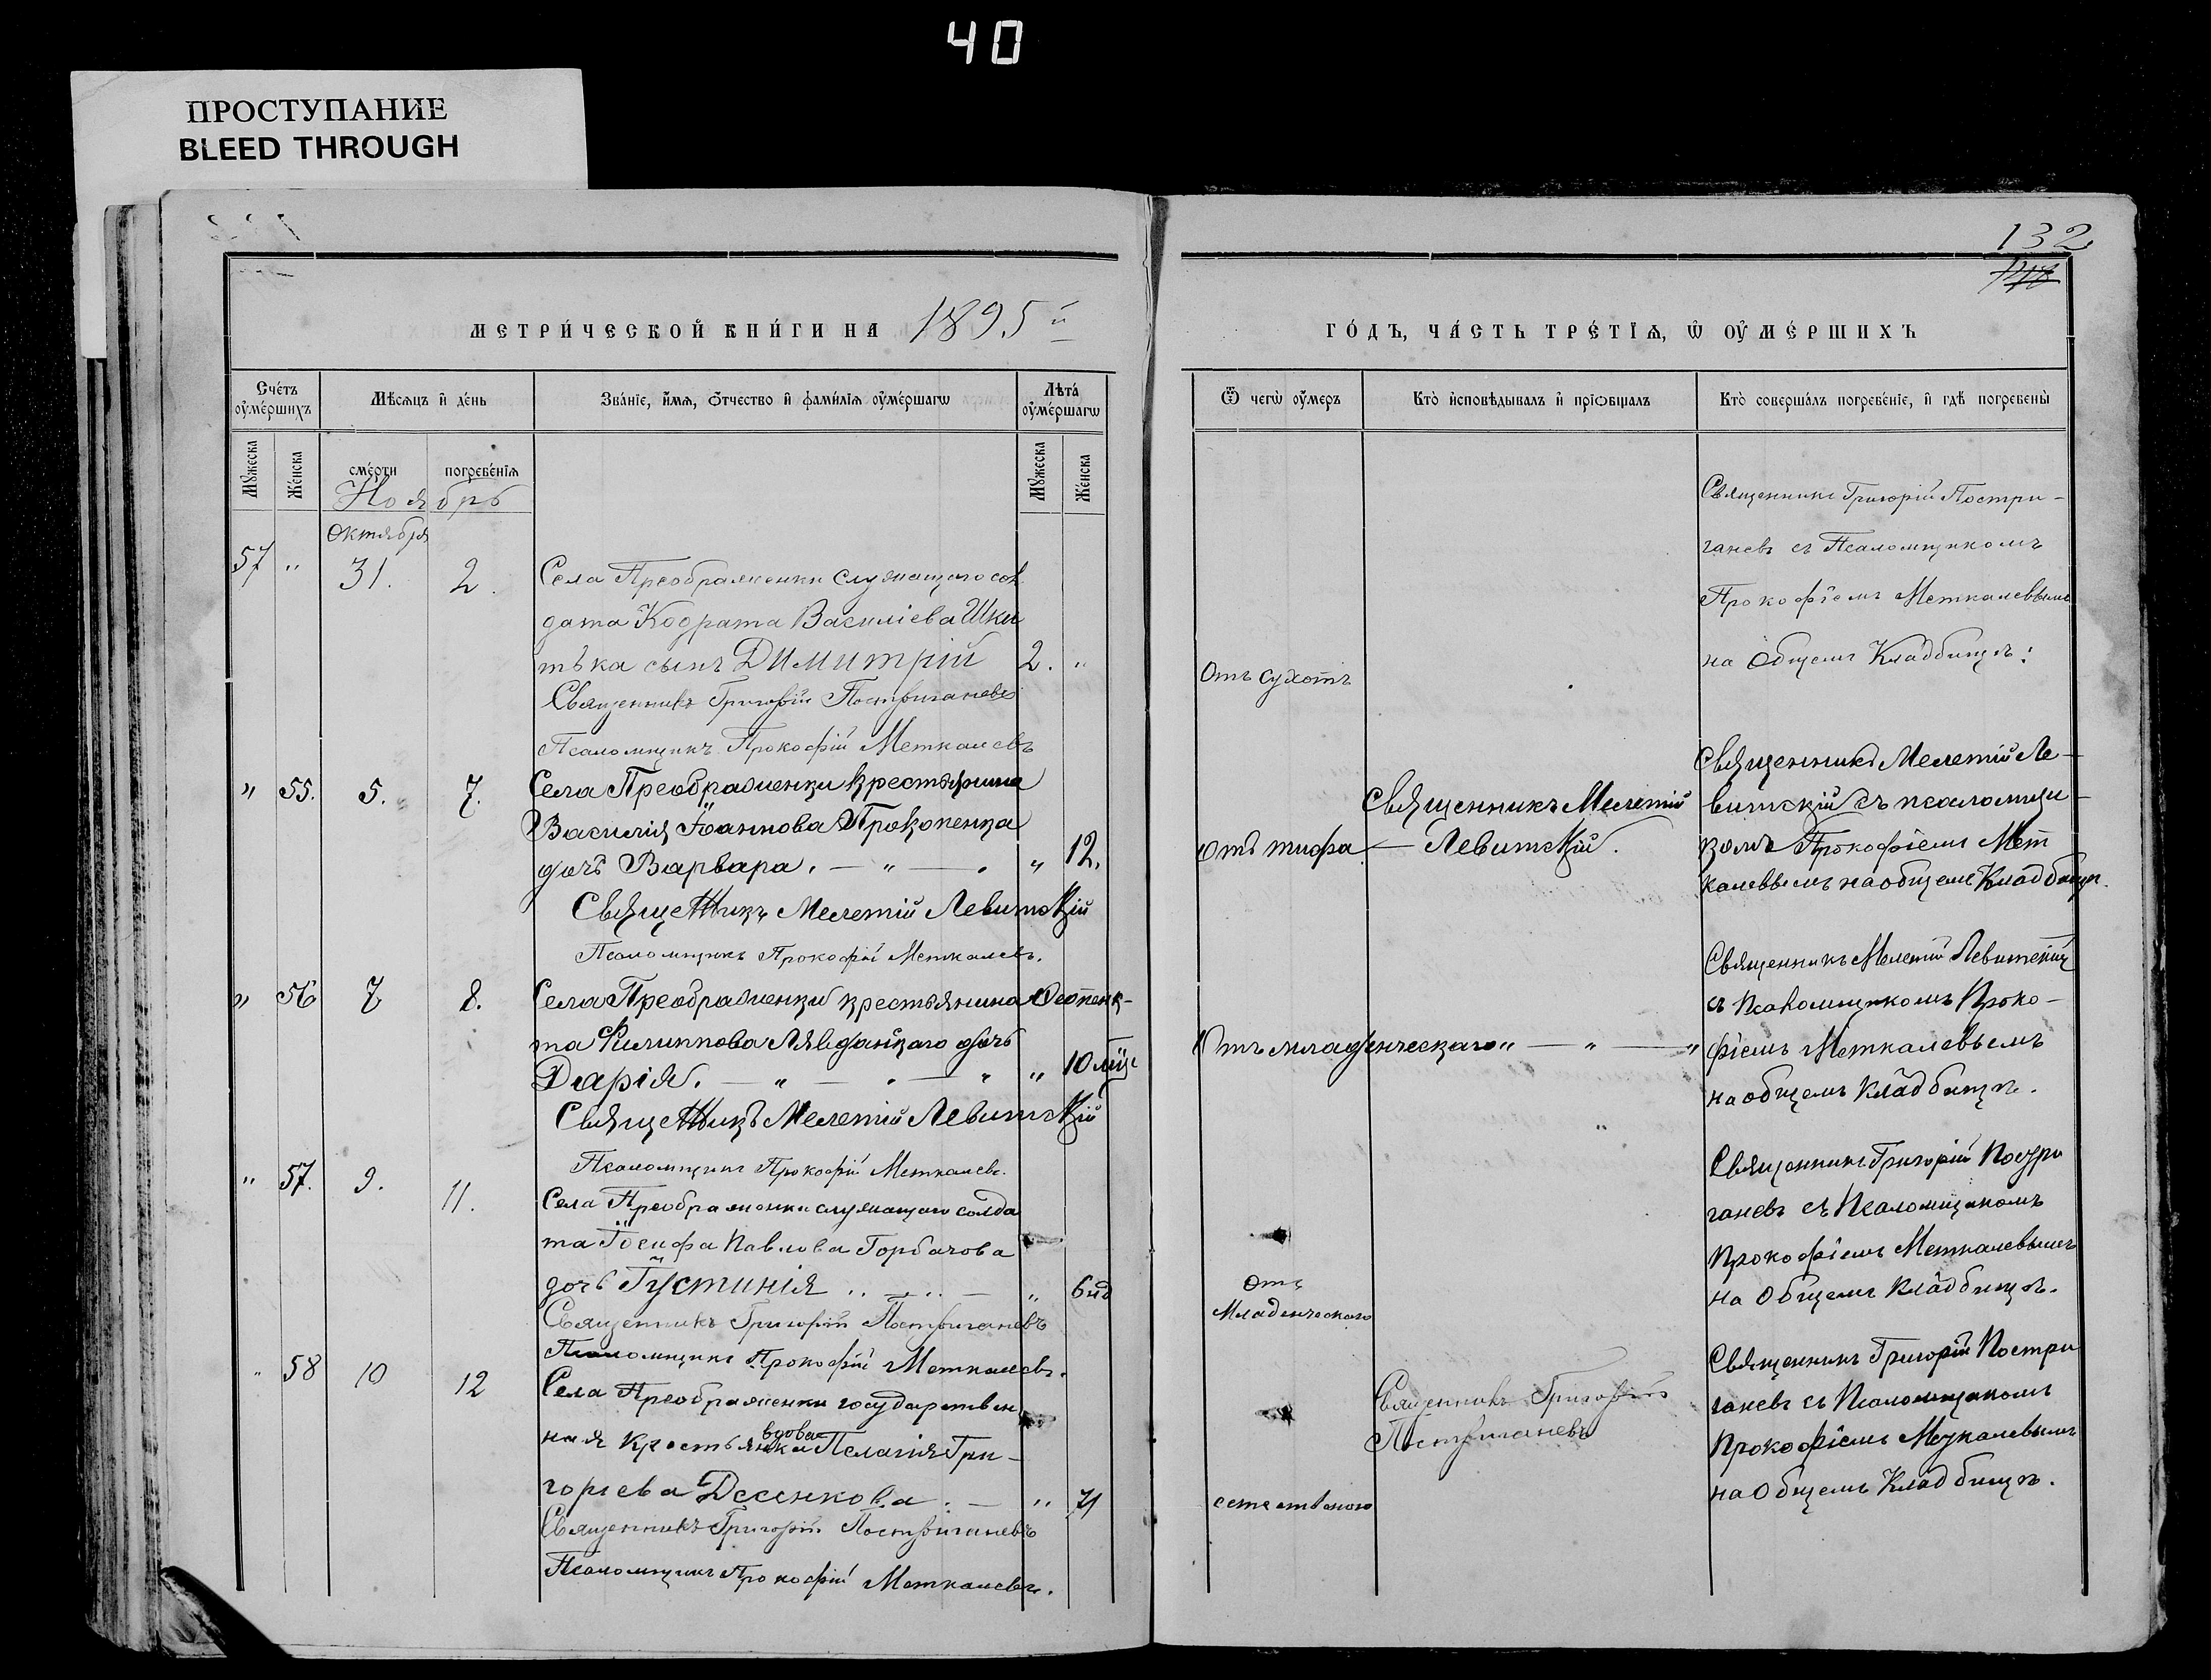 40
ПРОСТУПАНИЕ
BLEED THROUGH
132
МЕТРИ́ЧЕСКОЙ КНИ́ГИ НА 1895й
ГО́ДЪ, ЧА́СТЬ ТРЕ́ТЇѦ, Ѡ҆ ОУ҆МЕ́РШИХЪ
Сче́тъ оу҆ме́ршихъ
Мѣ́сѧцъ и҆ де́нь
Зва́нїе, и҆́мѧ, ѻ҆́тчество и҆ фами́лїѧ оу҆ме́ршагѡ
Лѣта̀ оу҆ме́ршагѡ
Ѿ чегѡ̀ оу҆́меръ
Кто̀ и҆сповѣ́дывалъ и҆ прїѡбща́лъ
Кто̀ соверша́лъ погребе́нїе, и҆ гдѣ̀ погребены̀
Мꙋ́жеска
Же́нска
сме́рти
погребе́нїѧ
Мꙋ́жеска
Же́нска
Ноябрь
Октября
57 " 31. 2.
Села Преображенки служащаго сол
дата Кодрата Василіева Шки
тѣка сынъ Димитрій 2. "
Священникъ Григорій Постригановъ
Псаломщикъ Прокофій Меткалевъ
Отъ сухотъ
Священникъ Григорій Постри-
гановъ съ Псаломщикомъ
Прокофіемъ Меткалеввымъ
на Общемъ Кладбищѣ:
" 55. 5. 7.
Села Преображенки крестьянина
Василія Іоаннова Прокопенка
дочь Варвара. — " — . " 12.
Священникъ Мелетій Левитскій
Псаломщикъ Прокофій Меткалевъ.
отъ тифа
Священникъ Мелетій
— Левитскій.
Священникъ Мелетій Ле-
витскій съ псаломщи-
комъ Прокофіемъ Мет
калеввымъ на общемъ Кладбищѣ.
" 56 7 8.
Села Преображенки крестьянина Ѳеопенк-
та Филиппова Лявданскаго дочь
Дарія. — " — . — " " 10 мѣс
Священникъ Мелетій Левитскій
Псаломщикъ Прокофій Меткалевъ.
Отъ младенческаго " — " — "
Священникъ Мелетій Левитскій
съ Псаломщикомъ Проко-
фіемъ Меткалевьемъ
на общемъ Кладбищѣ.
" 57. 9. 11.
Села Преображенки служащаго солда
та Іосифа Павлова Горбачова
дочь Іустинія .. — .. — " 6 нд
Священникъ Григорій Постригановъ
Псаломщикъ Прокофій Меткалевъ.
Отъ
Младенческаго
Священникъ Григорій Постри
гановъ съ Псаломщикомъ
Прокофіемъ Меткалевымъ
на Общемъ Кладбищѣ.
" 58 10 12
Села Преображенки государствен
ная Крестьянка вдова Пелагія Гри-
горьева Десенкова. — " 71
Священникъ Григорій Постригановъ
Псаломщикъ Прокофій Меткалевъ.
естественою
Священникъ Григорій
Постригановъ
Священникъ Григорій Постри
гановъ съ Псаломщикомъ
Прокофіемъ Меткалевымъ
на Общемъ Кладбищѣ.